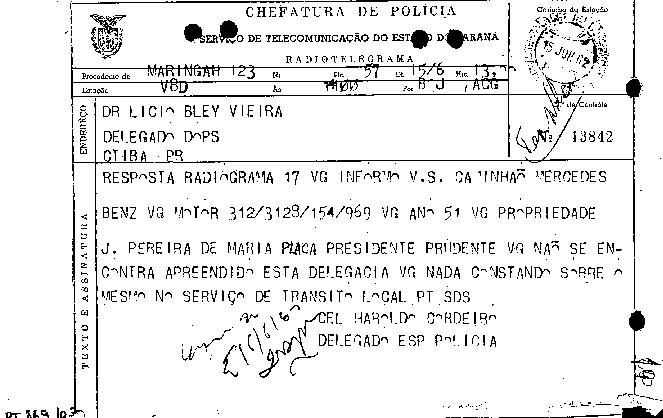 CHEFATURA DE POLÍCIA
SERVIÇO DE TELECOMUNICAÇÃO DO ESTADO DO PARANÁ
RADIOTELEGRAMA
Carimbo da Estação
15 JUN 62
Procedente de MARINGAH 123 Nr. Pls. 57 Dt. 15/6 Hrs. 13,
Estação V8D Às 1400 Por BJ / ACG
Nº de Contrôle
Nº 13842
ENDERÊÇO
DR LICIO BLEY VIEIRA
DELEGADO DOPS
CTIBA PR
TEXTO E ASSINATURA
RESPOSTA RADIOGRAMA 17 VG INFORMO V.S. CAMINHAÕ MERCEDES
BENZ VG MOTOR 312/3128/154/969 VG ANO 51 VG PROPRIEDADE
J. PEREIRA DE MARIA PLACA PRESIDENTE PRUDENTE VG NAÕ SE EN-
CONTRA APREENDIDO ESTA DELEGACIA VG NADA CONSTANDO SOBRE O
MESMO NO SERVIÇO DE TRANSITO LOCAL PT SDS
CEL HAROLDO CORDEIRO
DELEGADO ESP POLICIA